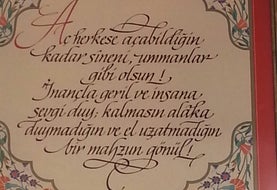 Aç herkese açabildiğin
kadar sîneni, ummanlar
gibi olsun!
İnançla geril ve insana
sevgi duy; kalmasın alâka
duymadığın ve el uzatmadığın
bir mahzun gönül!